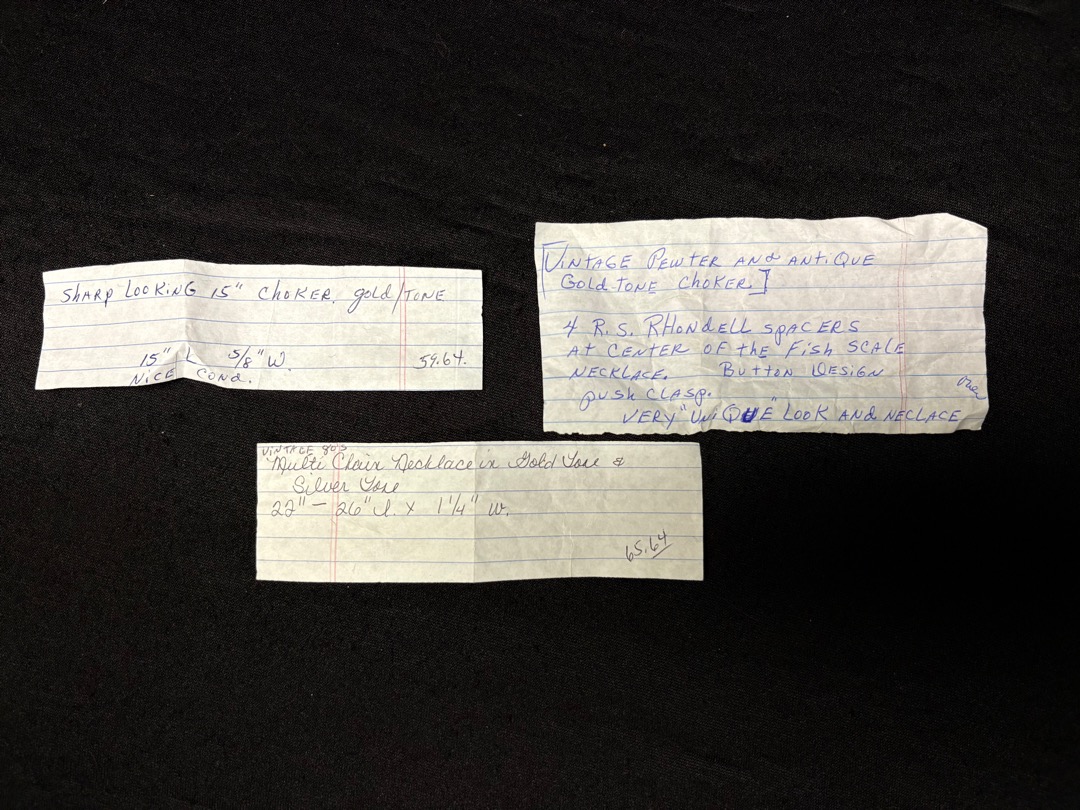 SHARP LOOKING 15" CHOKER. gold/TONE
15" L 5/8" W. 59.64.
NICE COND.
[VINTAGE PEWTER AND ANTIQUE
GOLD TONE CHOKER.]
4 R.S. RHONDELL SPACERS
AT CENTER OF the FISH SCALE
NECKLACE. BUTTON DESIGN
pUSh CLASP.
over
VERY "UNIQUE" LOOK AND NECLACE
VINTAGE 80'S
Multi Chain Necklace in Gold Tone &
Silver Tone
22" - 26" L. x 1 1/4" W.
65.64